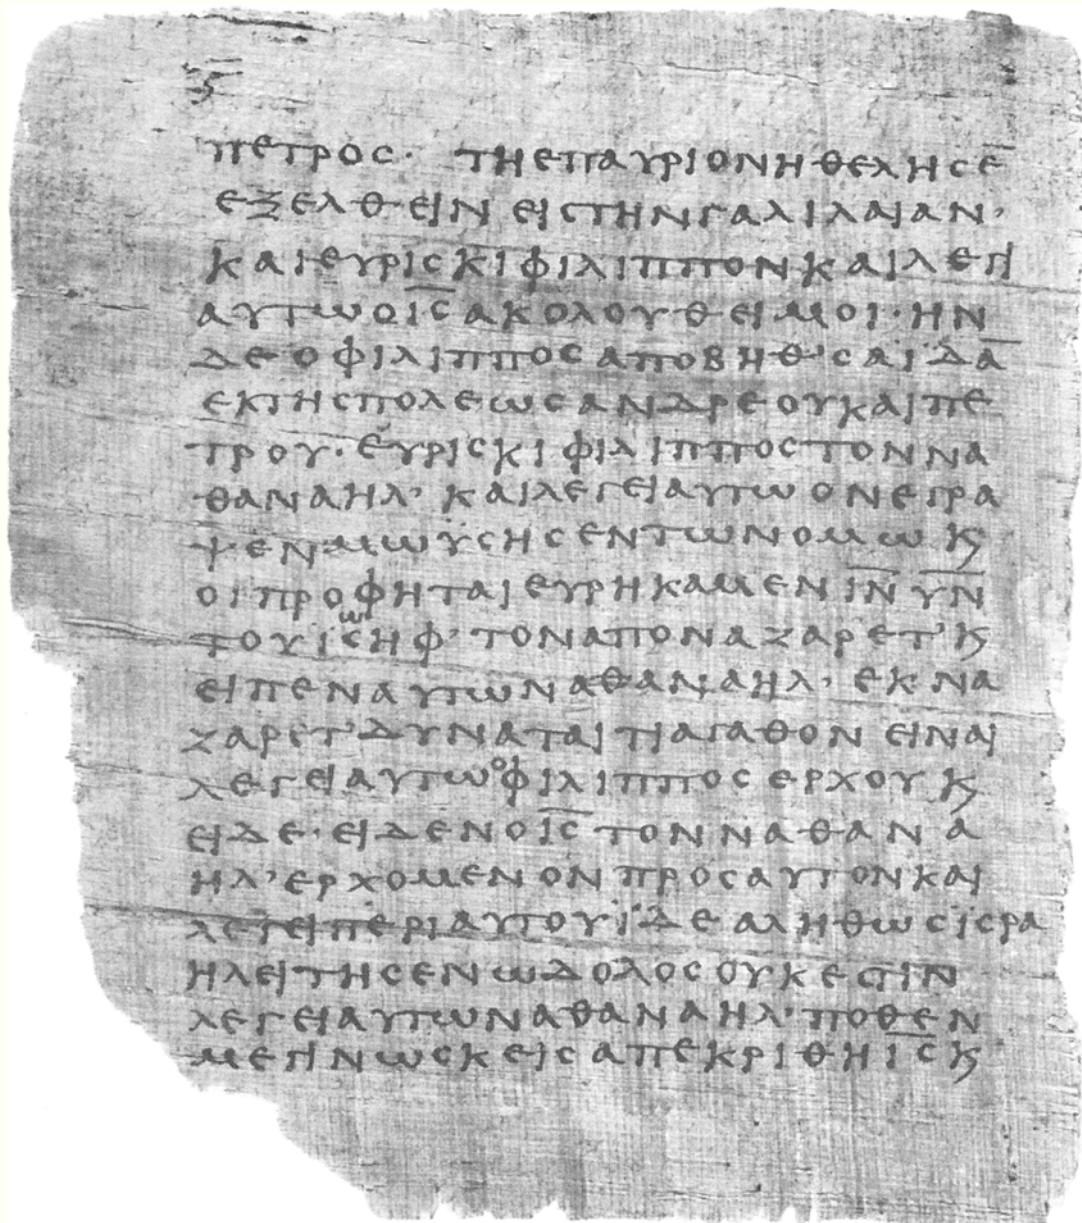 ϛ
ΠΕΤΡΟC· ΤΗ ΕΠΑΥΡΙΟΝ ΗΘΕΛΗCΕ̅
ΕΞΕΛΘΕΙΝ ΕΙC ΤΗΝ ΓΑΛΙΛΑΙΑΝ·
ΚΑΙ ΕΥΡΙCΚΙ ΦΙΛΙΠΠΟΝ ΚΑΙ ΛΕΓΙ
ΑΥΤΩ Ο Ι̅C̅ ΑΚΟΛΟΥΘΕΙ ΜΟΙ· ΗΝ
ΔΕ Ο ΦΙΛΙΠΠΟC ΑΠΟ ΒΗΘ’CΑΪΔΑ̅
ΕΚ ΤΗC ΠΟΛΕΩC ΑΝΔΡΕΟΥ ΚΑΙ ΠΕ
ΤΡΟΥ· ΕΥΡΙCΚΙ ΦΙΛΙΠΠΟC ΤΟΝ ΝΑ
ΘΑΝΑΗΛ’ ΚΑΙ ΛΕΓΕΙ ΑΥΤΩ ΟΝ ΕΓΡΑ
ΨΕΝ ΜΩΫCΗC ΕΝ ΤΩ ΝΟΜΩ Ϗ
ΟΙ ΠΡΟΦΗΤΑΙ ΕΥΡΗΚΑΜΕΝ Ι̅Ν̅ Υ̅Ν̅
ΤΟΥ ΙωCΗΦ’ ΤΟΝ ΑΠΟ ΝΑΖΑΡΕΤ’ Ϗ
ΕΙΠΕΝ ΑΥΤΩ ΝΑΘΑΝΑΗΛ’ ΕΚ ΝΑ
ΖΑΡΕΤ’ ΔΥΝΑΤΑΙ ΤΙ ΑΓΑΘΟΝ ΕΙΝΑΙ
ΛΕΓΕΙ ΑΥΤΩ ο ΦΙΛΙΠΠΟC ΕΡΧΟΥ Ϗ
ΕΙΔΕ· ΕΙΔΕΝ Ο Ι̅C̅ ΤΟΝ ΝΑΘΑΝΑ
ΗΛ’ ΕΡΧΟΜΕΝΟΝ ΠΡΟC ΑΥΤΟΝ ΚΑΙ
ΛΕΓΕΙ ΠΕΡΙ ΑΥΤΟΥ ΪΔΕ ΑΛΗΘΩC ΙCΡΑ
ΗΛΕΙΤΗC ΕΝ Ω ΔΟΛΟC ΟΥΚ ΕCΤΙΝ
ΛΕΓΕΙ ΑΥΤΩ ΝΑΘΑΝΑΗΛ’ ΠΟΘΕΝ
ΜΕ ΓΙΝΩCΚΕΙC ΑΠΕΚΡΙΘΗ Ι̅C̅ Ϗ